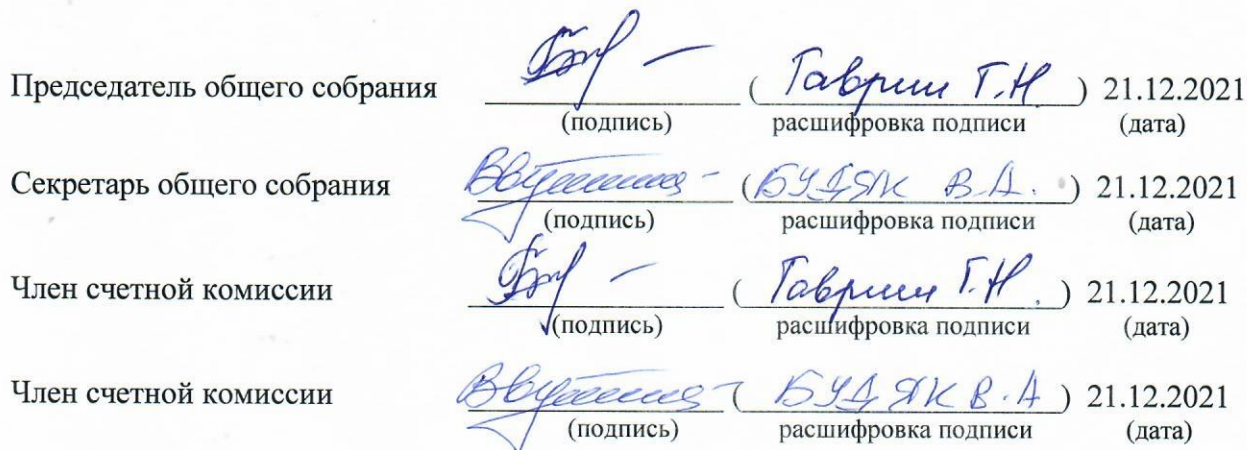 Председатель общего собрания ( Гаврии Т.Н. ) 21.12.2021
(подпись) расшифровка подписи (дата)
Секретарь общего собрания (БУДЯК В.А. ) 21.12.2021
(подпись) расшифровка подписи (дата)
Член счетной комиссии ( Гаврии Т.Н. ) 21.12.2021
(подпись) расшифровка подписи (дата)
Член счетной комиссии ( БУДЯК В.А ) 21.12.2021
(подпись) расшифровка подписи (дата)